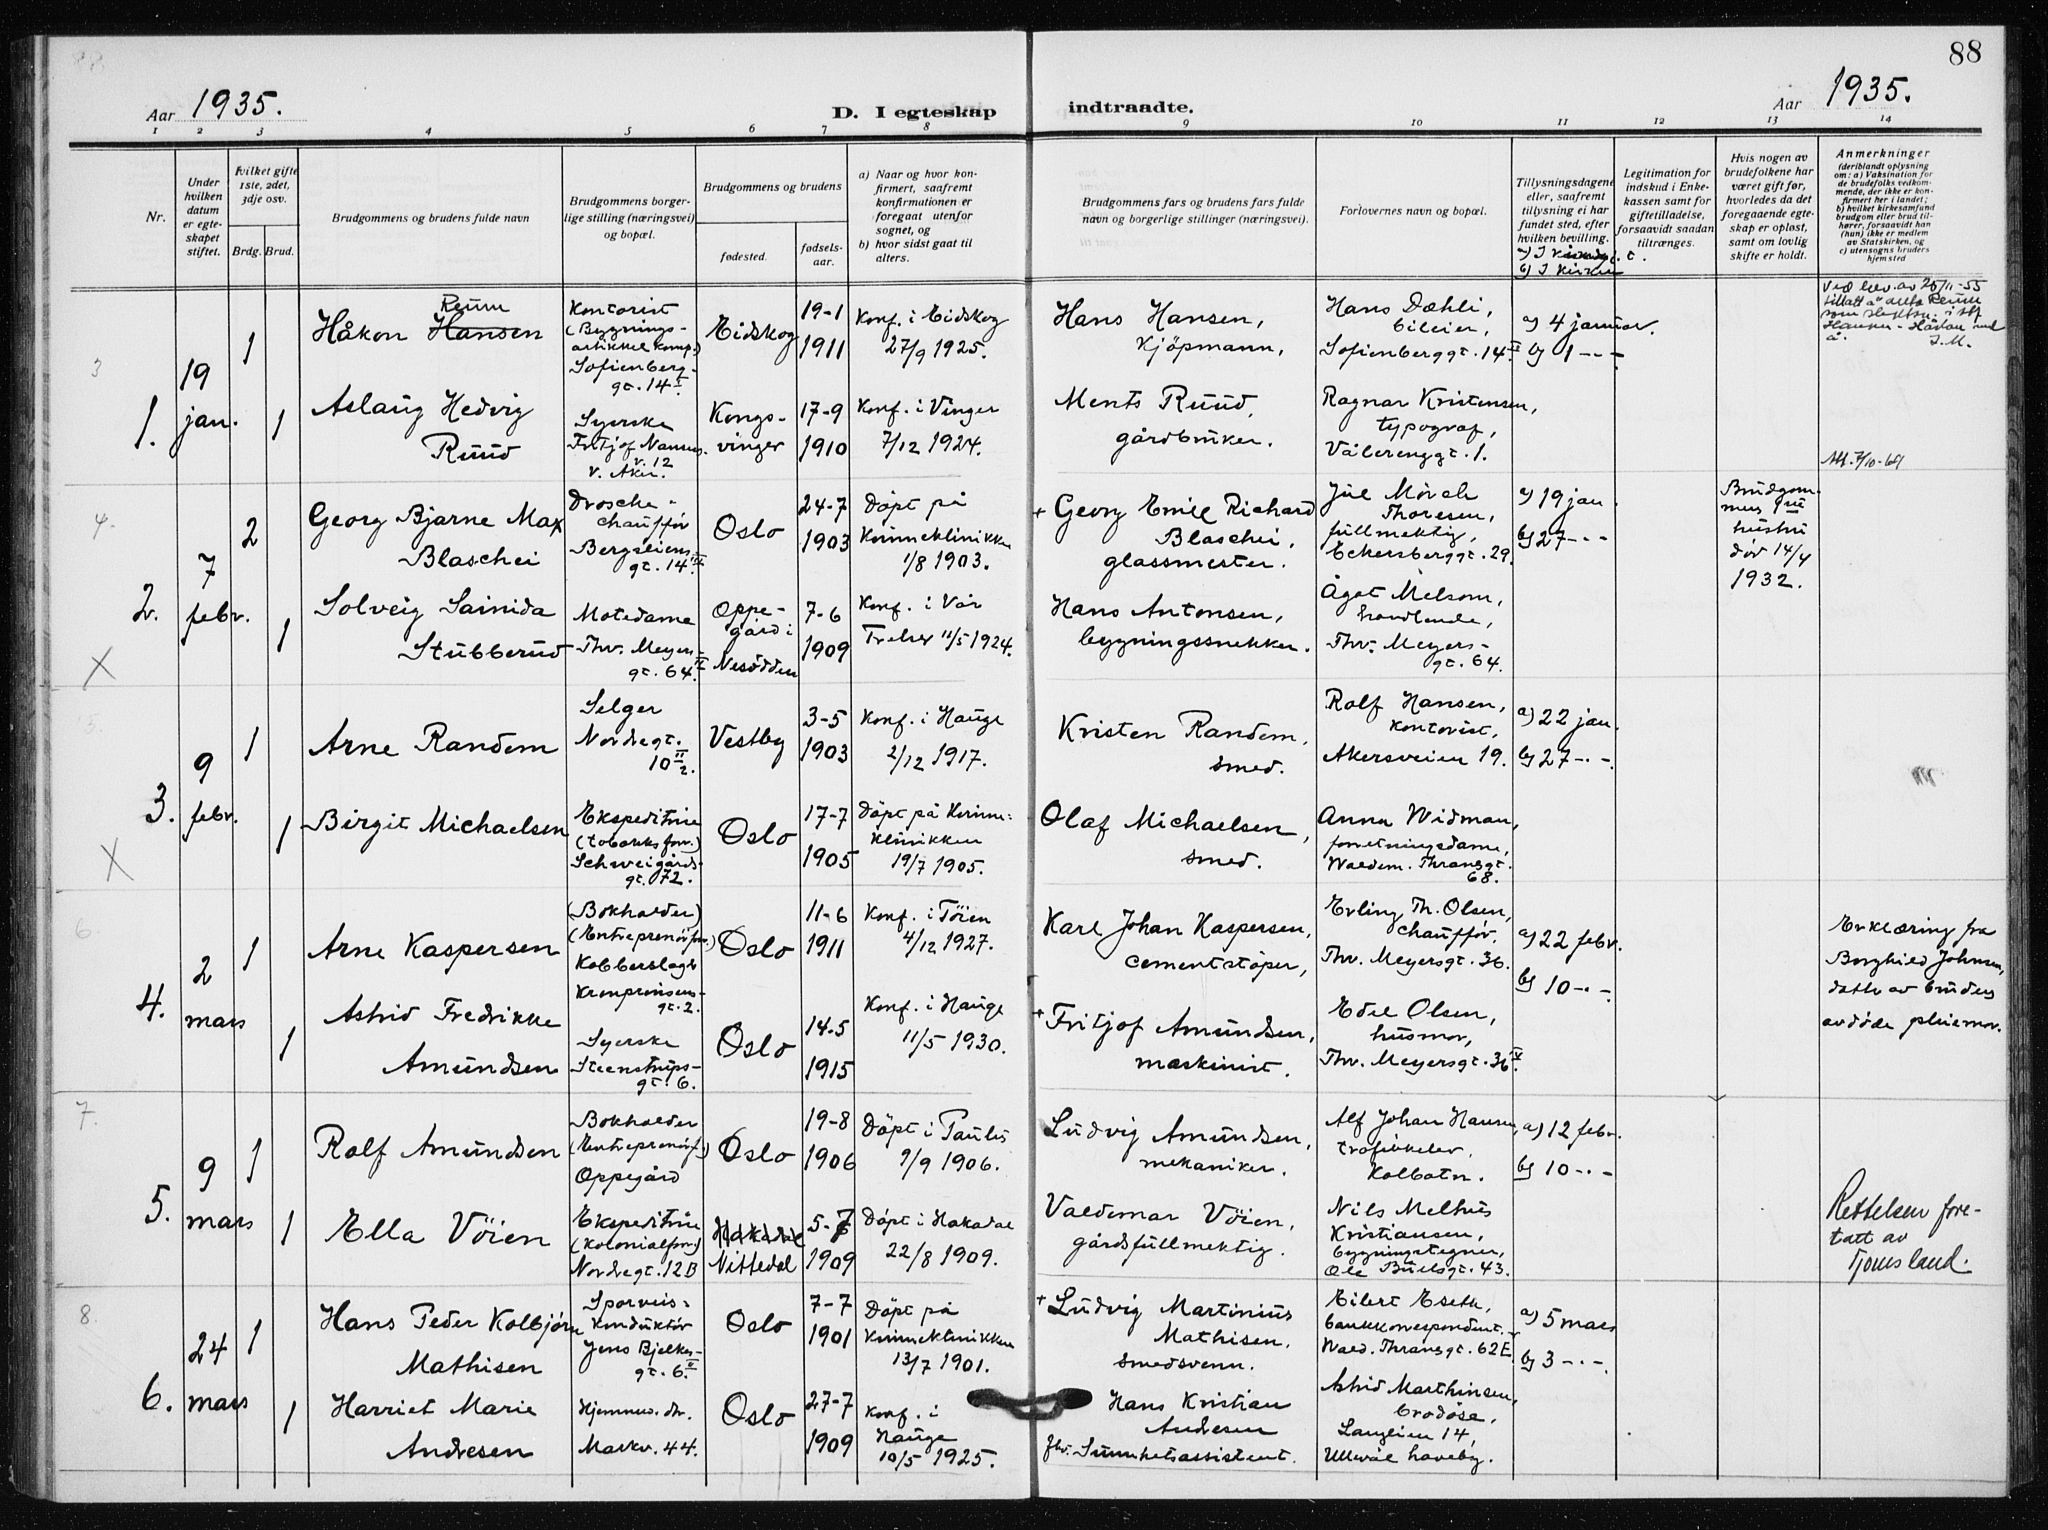 88
Aar 1935.
D. I egteskap
indtraadte.
Aar 1935.
1 2 3 4 5 6 7 8 9 10 11 12 13 14
Nr.
Under
hvilken
datum
er egte-
skapet
stiftet.
Hvilket gifte
1ste, 2det,
3dje osv.
Brdg. Brud.
Brudgommens og brudens fulde navn
Brudgommens borger-
lige stilling (næringsvei)
og bopæl.
Brudgommens og brudens
fødested.
fødsels-
aar.
a) Naar og hvor kon-
firmert, saafremt
konfirmationen er
foregaat utenfor
sognet, og
b) hvor sidst gaat til
alters.
Brudgommens fars og brudens fars fulde
navn og borgerlige stillinger (næringsvei).
Forlovernes navn og bopæl.
Tillysningsdagene
eller, saafremt
tillysning ei har
fundet sted, efter
hvilken bevilling.
b) I kirken
Legitimation for
indskud i Enke-
kassen samt for
giftetilladelse,
forsaavidt saadan
tiltrænges.
Hvis nogen av
brudefolkene har
været gift før,
hvorledes da det
foregaaende egte-
skap er opløst,
samt om lovlig
skifte er holdt.
Anmerkninger
(deriblandt oplysning
om: a) Vaksination for
de brudefolks vedkom-
mende, der ikke er kon-
firmert her i landet;
b) hvilket kirkesamfund
brudgom eller brud til-
hører, forsaavidt han
(hun) ikke er medlem
av Statskirken, og
c) utensogns bruders
hjemsted
3
1.
19
jan.
1
Reum
Håkon Hansen
Kontorist
(Bygnings-
artikkel komp.)
Sofienberg-
gt. 14 I
Eidskog
19-1
1911
Konf. i Eidskog
27/9 1925.
Hans Hansen,
Kjöpmann,
Hans Dæhli,
bileier,
Sofienberggt. 14 II
a) 4 januar.
b) 1 - - -
Ved brev av 25/11-55
1
Aslaug Hedvig
Ruud
Syerske
Fritjof Nansens
v. 12
V. Aker.
Kongs-
vinger
17-9
1910
Konf. i Vinger
7/12 1924.
Ments Ruud,
gårdbruker.
Ragnar Kristensen,
typograf,
Vålerenggt. 1.
4.
2.
7
febr.
2
Georg Bjarne Max
Blaschei
Drosche-
chauffør
Bergsliens-
gt. 14 III
Oslo
24-7
1903
Döpt på
Kvinneklinikken
1/8 1903.
+ Georg Emil Richard
Blaschei,
glassmester.
Juel Mörch
Thoresen,
fullmektig,
Eckersberggt. 29.
a) 19 jan.
b) 27 - - -
Brudgom-
mens
hustru
död 14/4
1932.
1
Solveig Sainida
Stubberud
Motedame
Thv. Meyers-
gt. 64.
Oppe-
gård i
Nesodden
7-6
1909
Konf. i Vår
Frelser 11/5 1924.
Hans Antonsen,
bygningssnekker.
Ågot Melsom,
handlende,
Thv. Meyers-
gt. 64.
X
5.
3.
9
febr.
1
Arne Randem
Selger
Nordregt.
10 II 2.
Vestby
3-5
1903
Konf. i Hauge
2/12 1917.
Kristen Randem,
smed.
Rolf Hansen,
kontorist,
Akersveien 19.
a) 22 jan.
b) 27 - - -
1
Birgit Michaelsen
Ekspeditrise
(tobakks forr.)
Schweigårds-
gt. 72.
Oslo
17-7
1905
Döpt på Kvinne-
klinikken
19/7 1905.
Olaf Michaelsen,
smed.
Anna Widman,
forretningsdame,
Waldem. Thranesgt.
68.
X
6.
4.
2
mars
1
Arne Kaspersen
(Bokholder)
(Entreprenörforr.)
Kobberslager
Kronprinsens-
gt. 2.
Oslo
11-6
1911
Konf. i Töien
4/12 1927.
Karl Johan Kaspersen,
cementstöper,
Erling Th. Olsen,
chauffør.
Thv. Meyersgt. 36.
a) 22 febr.
b) 10 - - -
Erklæring fra
Borghild Johnsen,
datter av brudens
avdöde pleiemor.
1
Astrid Fredrikke
Amundsen
Syerske
Steenstrups-
gt. 6.
Oslo
14-5
1915
Konf. i Hauge
11/5 1930.
+ Fritjof Amundsen,
maskinist.
Edel Olsen,
husmor,
Thv. Meyersgt. 36 IV.
7.
5.
9
mars
1
Rolf Amundsen
Bokholder
(Entreprenörf.)
Oppegård
Oslo
19-8
1906
Döpt i Paulus
9/9 1906.
Ludvig Amundsen,
mekaniker.
Alf Johan Hansen,
trafikkelev.
Kolbotn.
a) 12 febr.
b) 10 - - -
1
Ella Vöien
Ekspeditrise
(Kolonialforr.)
Nordregt. 12B
Hakadal
Nittedal
5-7
1909
Döpt i Hakadal
22/8 1909.
Valdemar Vöien,
gårdsfullmektig.
Nils Melhus
Kristiansen,
bygningstegner,
Ole Bullsgt. 43.
Rettelsen fore-
tatt av
Tjomsland.
8.
6.
24
mars
1
Hans Peder Kolbjörn
Mathisen
Sporveis-
konduktör
Jens Bjelkes-
gt. 6 II
Oslo
7-7
1901
Döpt på
Kvinneklinikken
13/7 1901.
+ Ludvig Martinius
Mathisen,
smedsvenn.
Eilert Eseth,
bankkorrespondent.
Wald. Thranesgt. 62E
a) 5 mars
b) 3 - - -
1
Harriet Marie
Andresen
Hjemmev. dr.
Markv. 44.
Oslo
27-7
1909
Konf. i
Hauge
10/5 1925.
Hans Kristian
Andresen
fhv. Sunnhetsassistent.
Astrid Marthinsen,
brodöse,
Langlien 14,
Ullevål haveby.